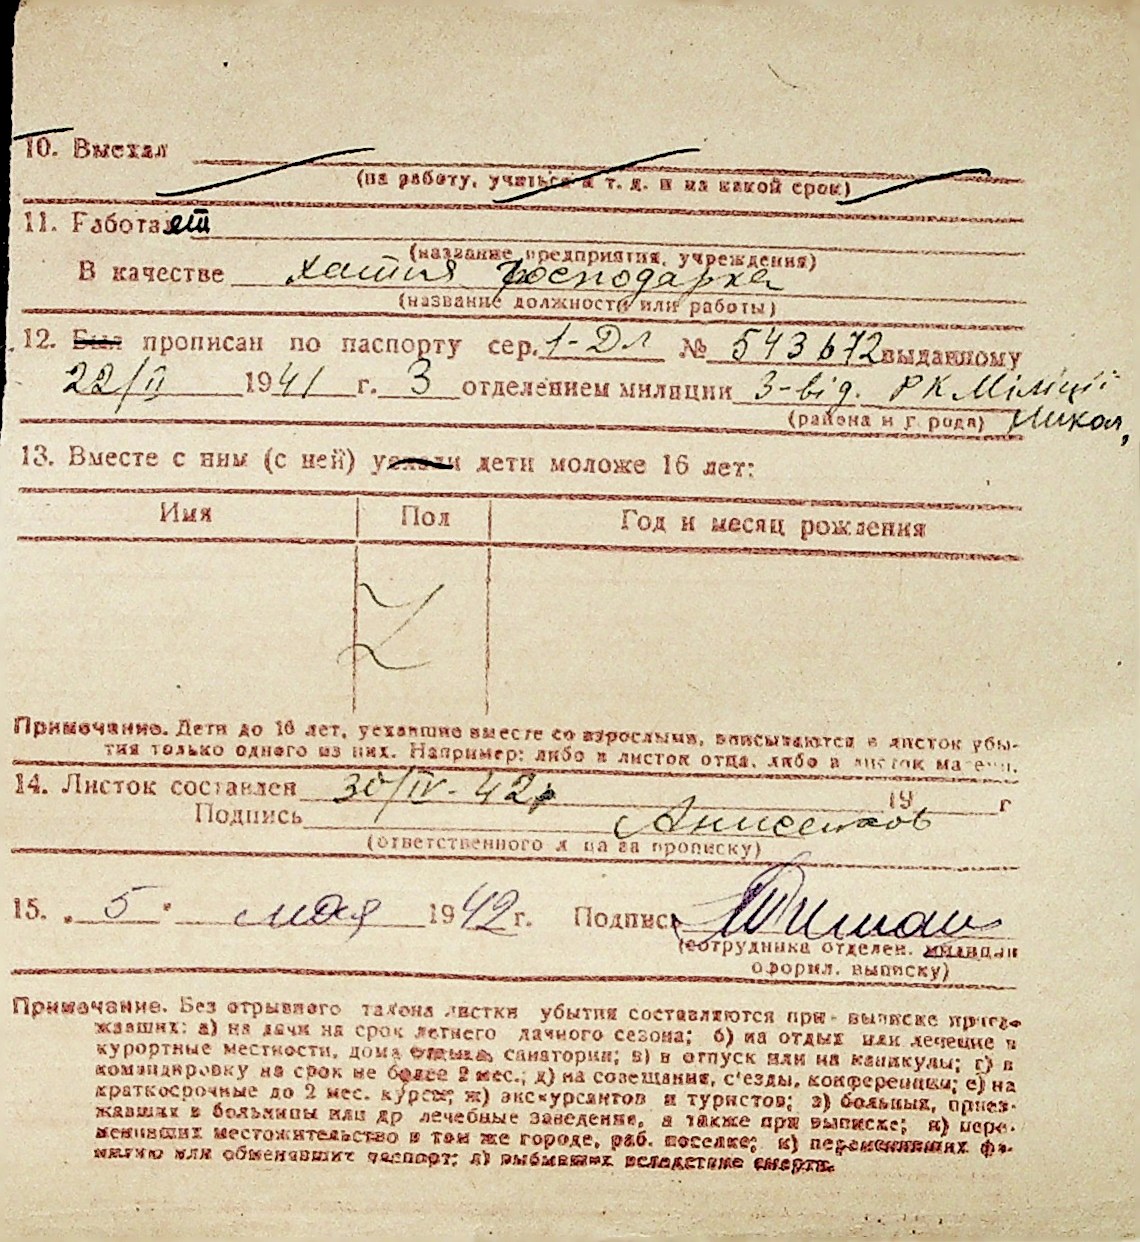 10. Выехал
(на работу, учиться и т. д. и на какой срок)
11. Работает
(название предприятия, учреждения)
В качестве хатня господарка
(название должности или работы)
12. Был прописан по паспорту сер. 1-Дл № 543672 выданному
22/II 1941 г. 3 отделением милиции 3-від. РК Міліції
(района и г рода) Микол,
13. Вместе с ним (с ней) уехали дети моложе 16 лет:
Имя Пол Год и месяц рождения
Z
Примечание. Дети до 16 лет, уехавшие вместе со взрослыми, вписываются в листок убы-
тия только одного из них. Например: либо в листок отца, либо в листок матери.
14. Листок составлен 30/IV-42 19 г
Подпись
(ответственного л ца за прописку)
15. „ 5 " мая 1942 г. Подпись
(сотрудника отделен. милиции
оформл. выписку)
Примечание. Без отрывного талона листки убытия составляются при выписке приез-
жавших: а) на дачи на срок летнего дачного сезона; б) на отдых или лечение в
курортные местности, дома отдыха, санатории; в) в отпуск или на каникулы; г) в
командировку на срок не более 2 мес.; д) на совещания, с'езды, конференции; е) на
краткосрочные до 2 мес. курсы; ж) экскурсантов и туристов; з) больных, приез-
жавших в больницы или др лечебные заведение, а также при выписке; и) пере-
менивших местожительство в том же городе, раб. поселке; к) переменивших фа-
милию или обменявших паспорт; л) выбывших вследствие смерти.